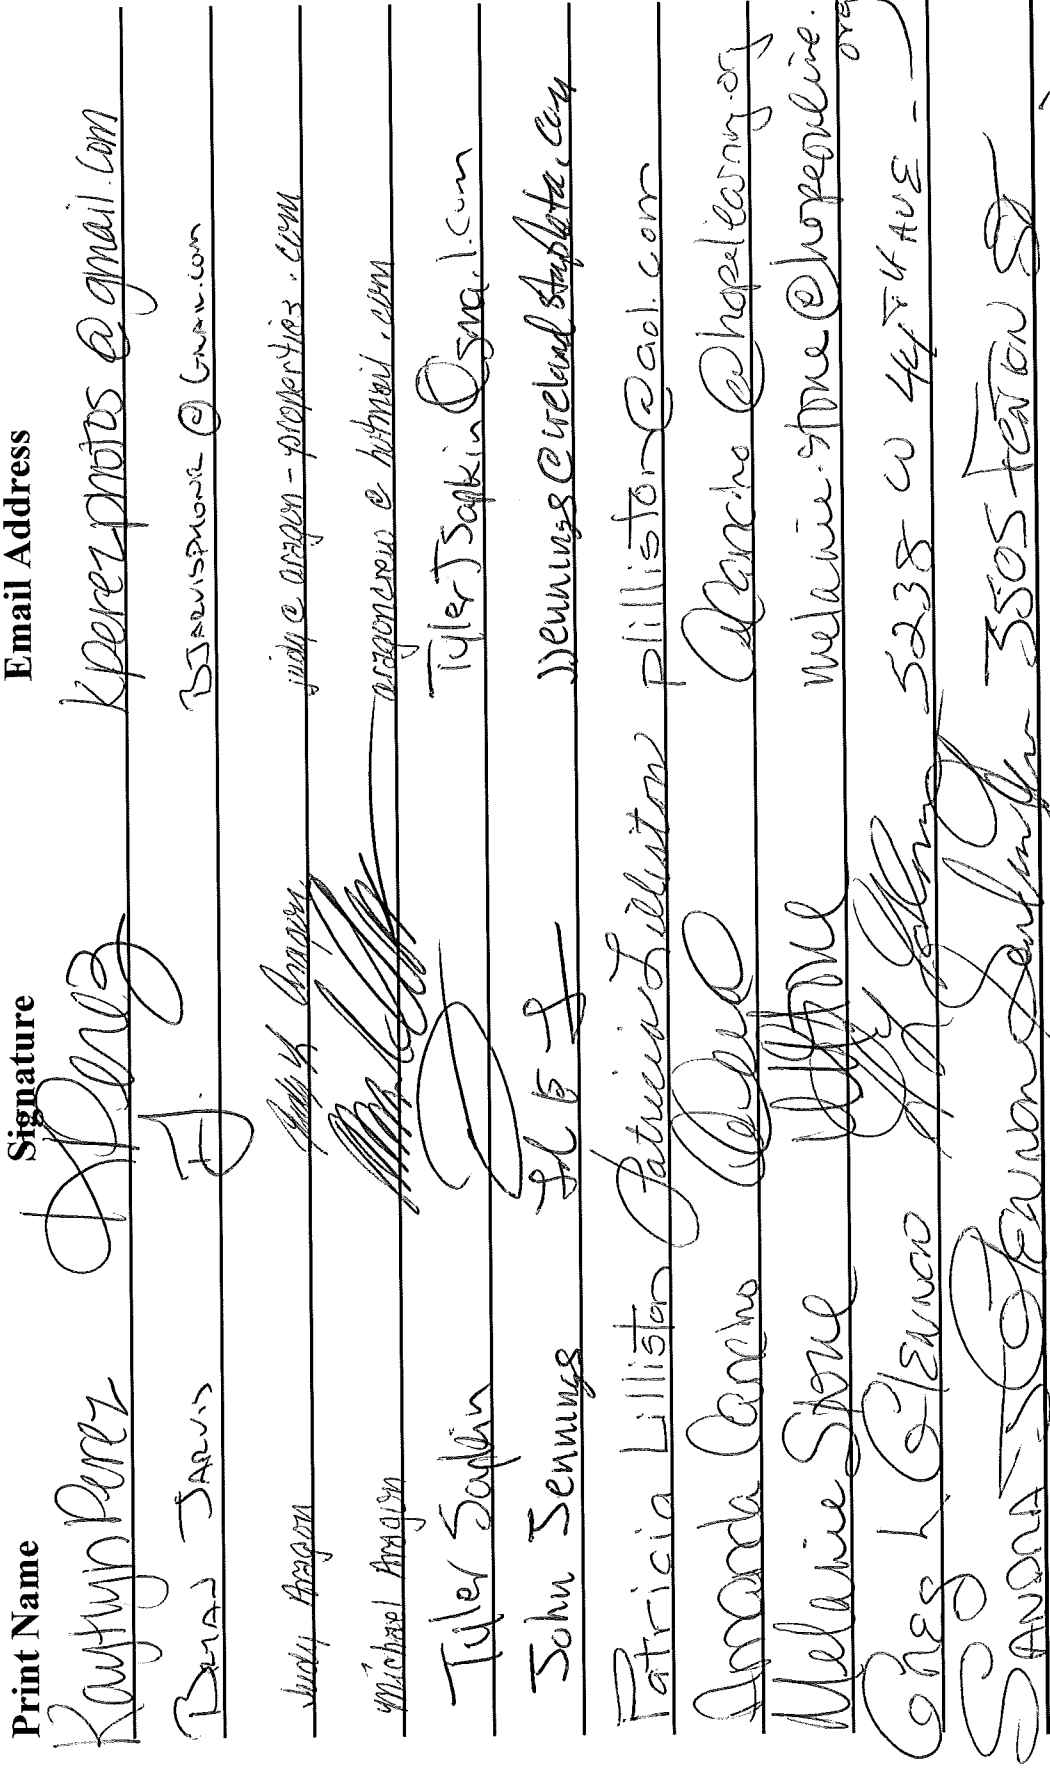 Print Name Signature Email Address
Kaytlyn Perez KPerez kperezphotos@gmail.com
Bryan Jarvis BJ. BJarvisphone@Gmail.com
Judy Aragon Judy K Aragon judy@aragon-properties.com
Michael Aragon aragoncrew@hotmail.com
Tyler Sapkin TylerJSapkin@gmail.com
John Jennings jjennings@irelandstapleton.com
Patricia Lilliston Patricia Lilliston plilliston@aol.com
Amanda Cancino acancino@hopelearning.org
Melanie Stone MStone melanie.stone@hopeonline.org
Greg L Glennon 5238 W 44TH AVE
SANDRA J Glennon 3505 FENTON ST